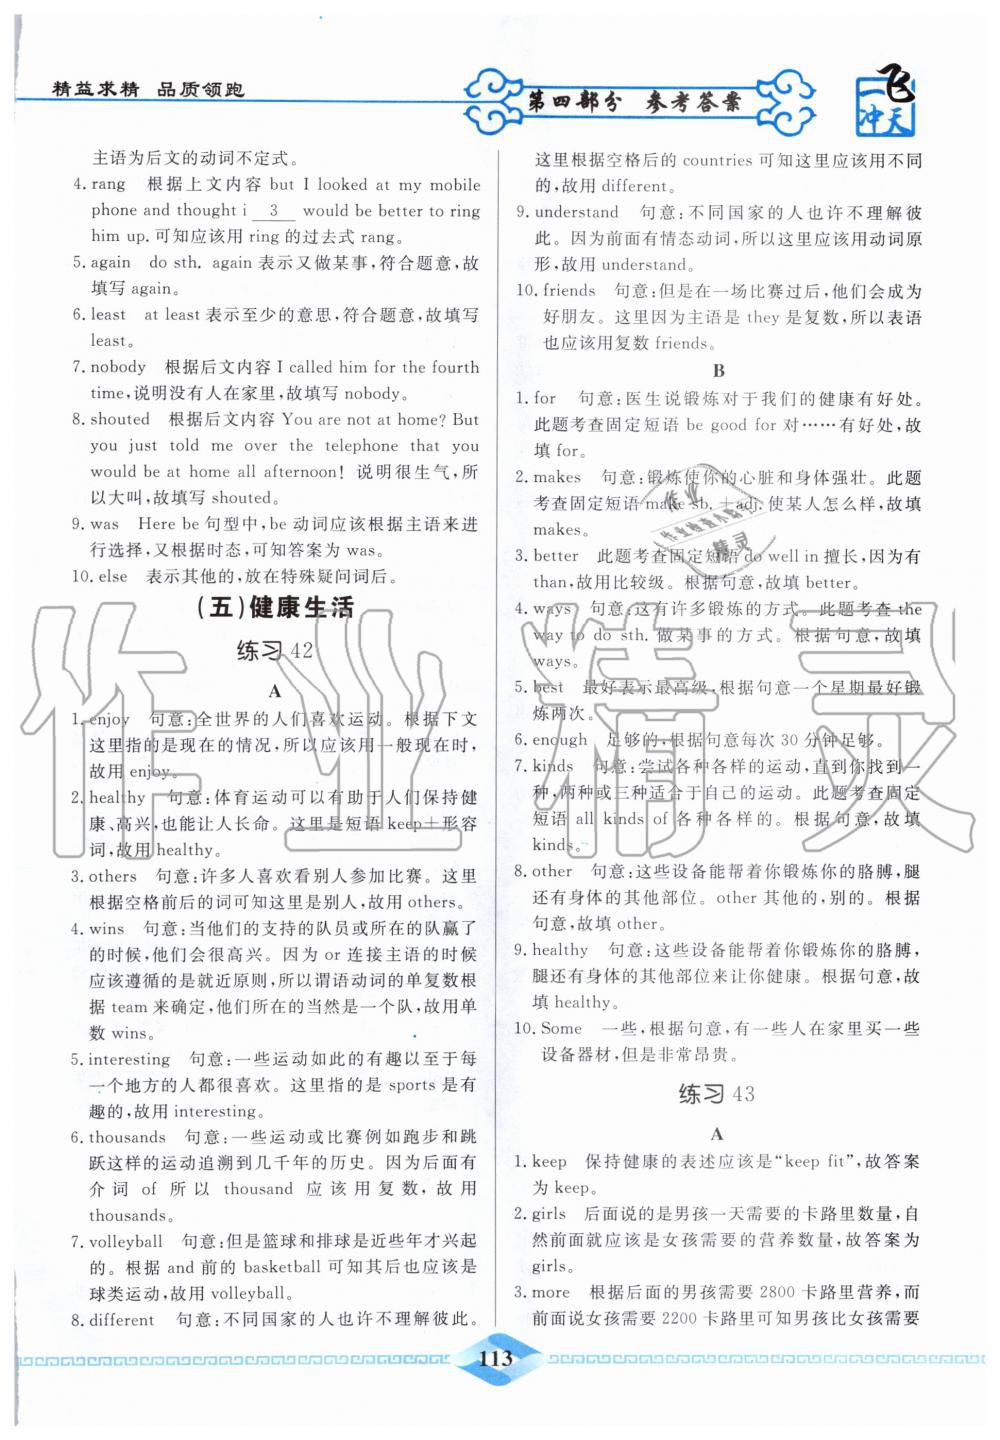 精益求精 品质领跑
第四部分 参考答案
飞
一
冲天
主语为后文的动词不定式。
4. rang 根据上文内容 but I looked at my mobile
phone and thought i 3 would be better to ring
him up. 可知应该用 ring 的过去式 rang。
5. again do sth. again 表示又做某事,符合题意,故
填写 again。
6. least at least 表示至少的意思,符合题意,故填写
least。
7. nobody 根据后文内容 I called him for the fourth
time,说明没有人在家里,故填写 nobody。
8. shouted 根据后文内容 You are not at home? But
you just told me over the telephone that you
would be at home all afternoon! 说明很生气,所
以大叫,故填写 shouted。
9. was Here be 句型中,be 动词应该根据主语来进
行选择,又根据时态,可知答案为 was。
10. else 表示其他的,放在特殊疑问词后。
(五)健康生活
练习 42
A
1. enjoy 句意:全世界的人们喜欢运动。根据下文
这里指的是现在的情况,所以应该用一般现在时,
故用 enjoy。
2. healthy 句意:体育运动可以有助于人们保持健
康、高兴,也能让人长命。这里是短语 keep+形容
词,故用 healthy。
3. others 句意:许多人喜欢看别人参加比赛。这里
根据空格前后的词可知这里是别人,故用 others。
4. wins 句意:当他们的支持的队员或所在的队赢了
的时候,他们会很高兴。因为 or 连接主语的时候
应该遵循的是就近原则,所以谓语动词的单复数根
据 team 来确定,他们所在的当然是一个队,故用单
数 wins。
5. interesting 句意:一些运动如此的有趣以至于每
一个地方的人都很喜欢。这里指的是 sports 是有
趣的,故用 interesting。
6. thousands 句意:一些运动或比赛例如跑步和跳
跃这样的运动追溯到几千年的历史。因为后面有
介词 of 所以 thousand 应该用复数,故用
thousands。
7. volleyball 句意:但是篮球和排球是近些年才兴起
的。根据 and 前的 basketball 可知其后也应该是
球类运动,故用 volleyball。
8. different 句意:不同国家的人也许不理解彼此。
这里根据空格后的 countries 可知这里应该用不同
的,故用 different。
9. understand 句意:不同国家的人也许不理解彼
此。因为前面有情态动词,所以这里应该用动词原
形,故用 understand。
10. friends 句意:但是在一场比赛过后,他们会成为
好朋友。这里因为主语是 they 是复数,所以表语
也应该用复数 friends。
B
1. for 句意:医生说锻炼对于我们的健康有好处。
此题考查固定短语 be good for 对……有好处,故
填 for。
2. makes 句意:锻炼使你的心脏和身体强壮。此题
考查固定短语 make sb. +adj. 使某人怎么样,故填
makes。
3. better 此题考查固定短语 do well in 擅长,因为有
than,故用比较级。根据句意,故填 better。
4. ways 句意:这有许多锻炼的方式。此题考查 the
way to do sth. 做某事的方式。根据句意,故填
ways。
5. best 最好表示最高级,根据句意一个星期最好锻
炼两次。
6. enough 足够的,根据句意每次 30 分钟足够。
7. kinds 句意:尝试各种各样的运动,直到你找到一
种,两种或三种适合于自己的运动。此题考查固定
短语 all kinds of 各种各样的。根据句意,故填
kinds。
8. other 句意:这些设备能帮着你锻炼你的胳膊,腿
还有身体的其他部位。other 其他的,别的。根据
句意,故填 other。
9. healthy 句意:这些设备能帮着你锻炼你的胳膊,
腿还有身体的其他部位来让你健康。根据句意,故
填 healthy。
10. Some 一些,根据句意,有一些人在家里买一些
设备器材,但是非常昂贵。
练习 43
A
1. keep 保持健康的表述应该是“keep fit”,故答案
为 keep。
2. girls 后面说的是男孩一天需要的卡路里数量,自
然前面就应该是女孩需要的营养数量,故答案为
girls。
3. more 根据后面的男孩需要 2800 卡路里营养,而
前面说女孩需要 2200 卡路里可知男孩比女孩需要
113
作业精灵